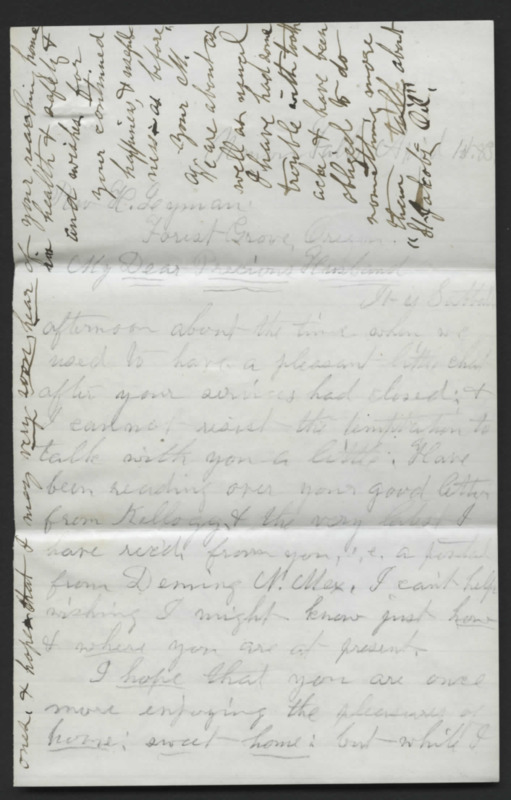 April 1st. 83
Rev H. Lyman
Forist Grove, Oregon.
My Dear Precious Husband
It is Sabbath
afternoon about the time when we
used to have a pleasant little chat
after your services had closed; &
I cannot resist the temptation to
talk with you a little. Have
been reading over your good letter
from Kellogg & the very latest I
have rec'd from you, i.e. a postal
from Deming N. Mex. I can't help
wishing I might know just how
& where you are at present.
I hope that you are once
more enjoying the pleasures of
home; sweet home: but while I
ones; & hope that I may very soon hear of your reaching home
in health & safety &
and wishes for
your continued
happiness & usefulness
as before,
Your M.
We are about as
well as usual
I have had some
trouble with tooth
ache & have been
obliged to do
something more
than talk about